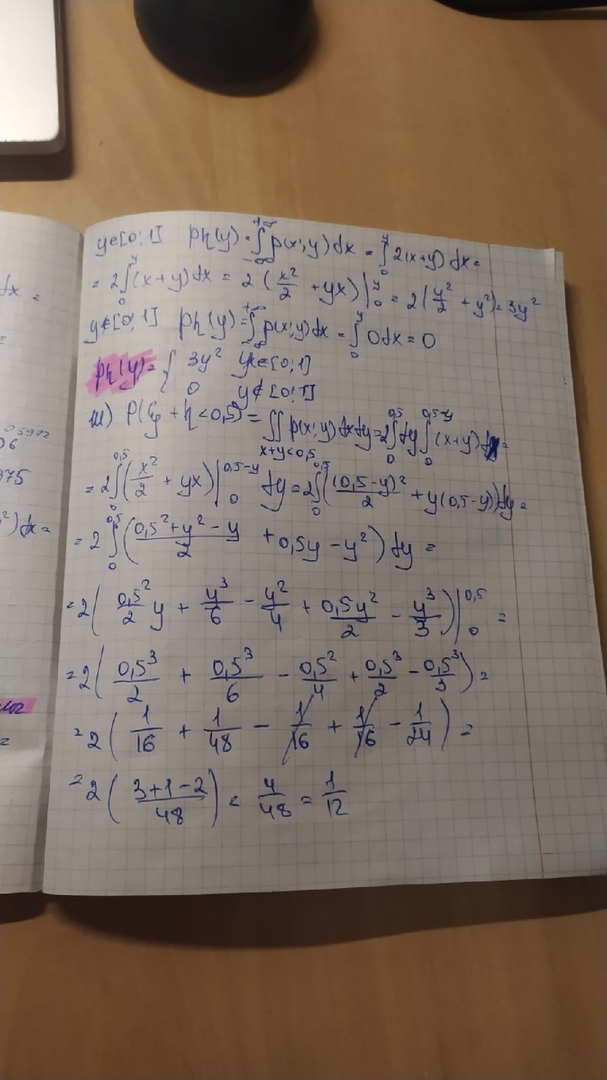 y∈[0;1] pη(y)=∫_{-∞}^{+∞} p(x;y)dx = ∫_0^y 2(x+y)dx =
= 2∫_0^y (x+y)dx = 2(x²/2 + yx)|_0^y = 2(y²/2 + y²) = 3y²
y∉[0;1] pη(y)=∫_{-∞}^{+∞} p(x;y)dx = ∫_0^y 0dx = 0
pη(y)= { 3y² y∈[0;1]
0 y∉[0;1]
ш) P(ξ + η < 0,5) = ∬_{x+y<0,5} p(x;y)dxdy = 2∫_0^{0,5} dy ∫_0^{0,5-y} (x+y)dx =
= 2∫_0^{0,5} (x²/2 + yx)|_0^{0,5-y} dy = 2∫_0^{0,5} ((0,5-y)²/2 + y(0,5-y))dy =
= 2∫_0^{0,5} ((0,5²+y²-y)/2 + 0,5y - y²)dy =
= 2(0,5²/2 y + y³/6 - y²/4 + 0,5y²/2 - y³/3)|_0^{0,5} =
= 2(0,5³/2 + 0,5³/6 - 0,5²/4 + 0,5³/2 - 0,5³/3) =
= 2(1/16 + 1/48 - 1/16 + 1/16 - 1/24) =
= 2((3+1-2)/48) = 4/48 = 1/12
dx =
=
06
375
²)dx =
=